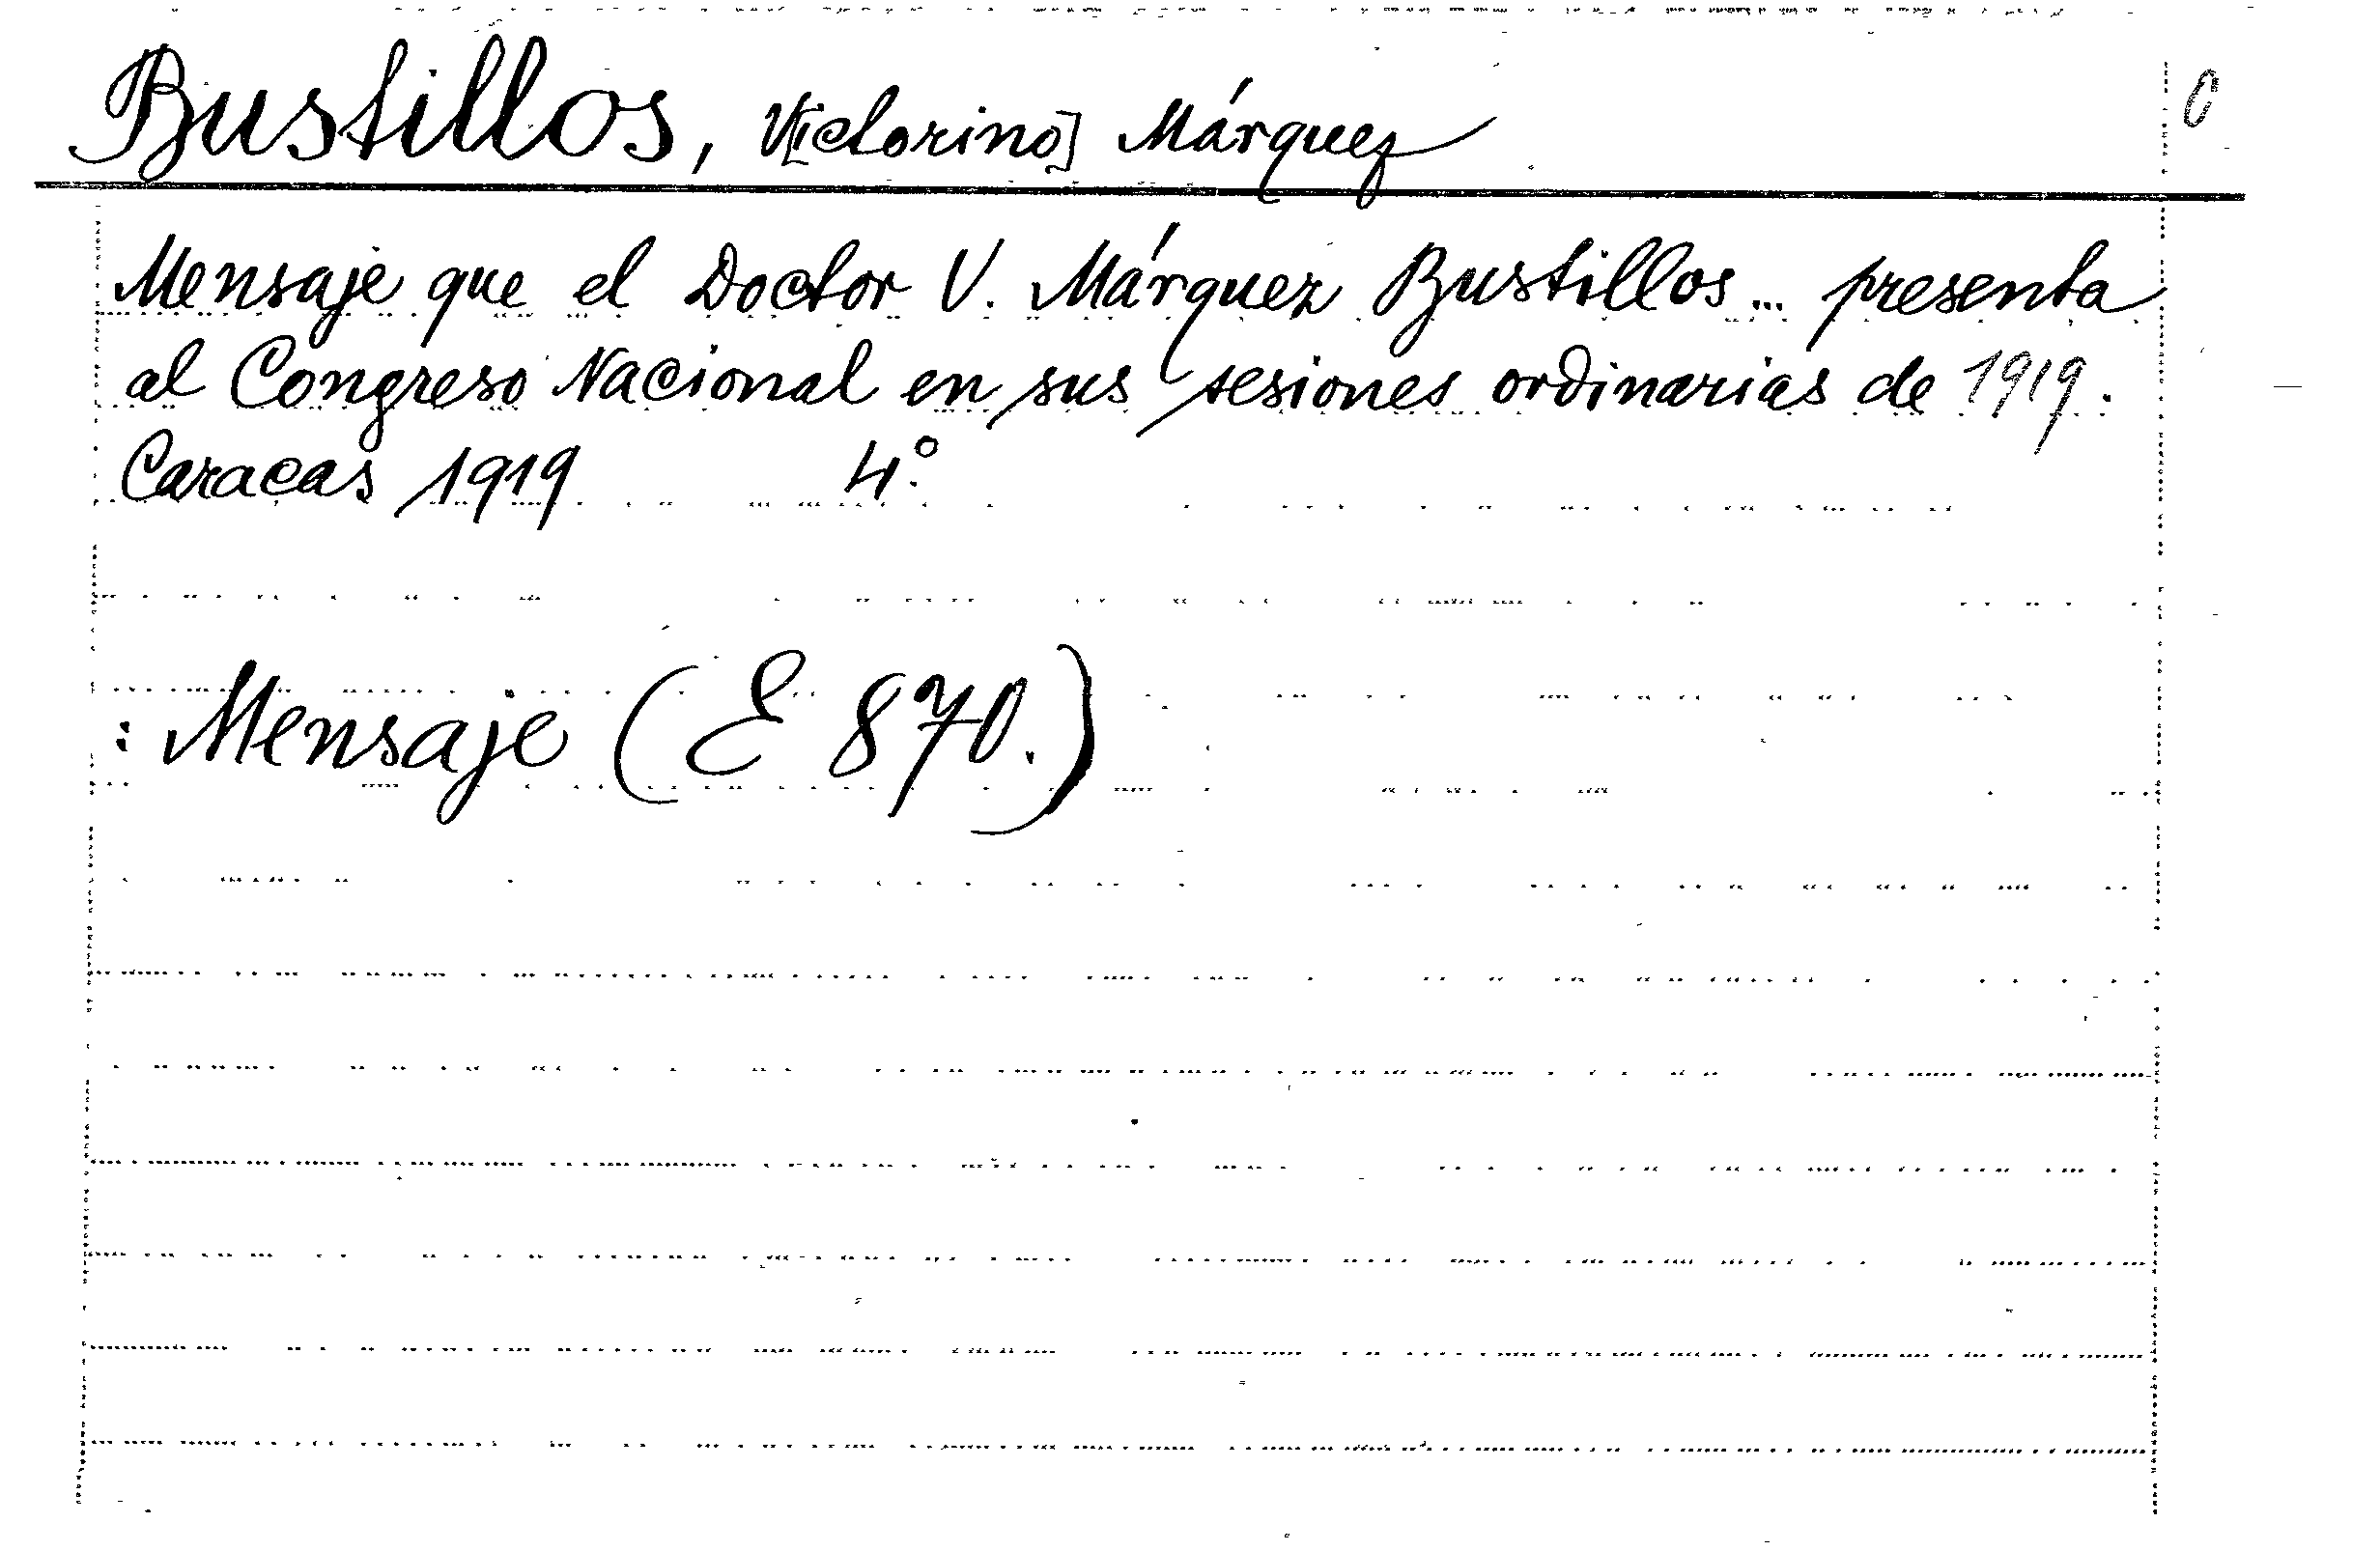 Bustillos, V[ictorino] Márquez
Mensaje que el Doctor V. Márquez Bustillos... presenta
al Congreso Nacional en sus sesiones ordinarias de 1919.
Caracas 1919 4.°
: Mensaje (E 870.)